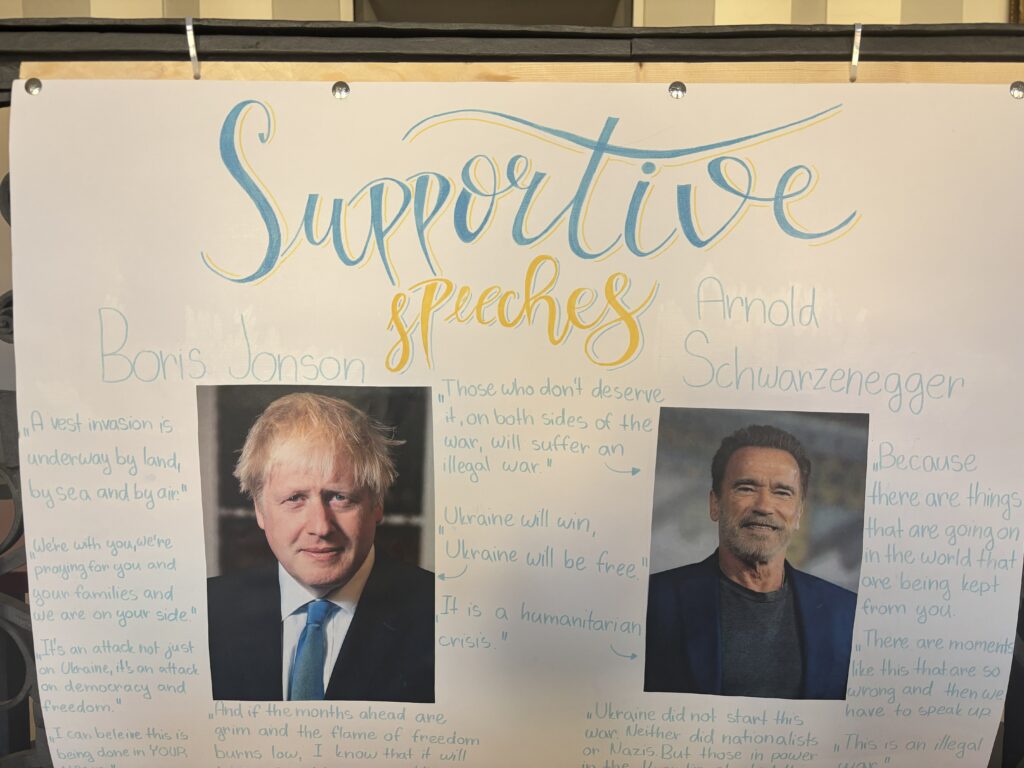 Supportive
speeches
Boris Jonson
„A vest invasion is
underway by land,
by sea and by air."
„We're with you, we're
praying for you and
your families and
we are on your side."
„It's an attack not just
on Ukraine, it's an attack
on democracy and
freedom."
„I can beleive this is
being done in YOUR
„And if the months ahead are
grim and the flame of freedom
burns low, I know that it will
„Those who don't deserve
it, on both sides of the
war, will suffer an
illegal war."
„Ukraine will win,
Ukraine will be free."
„It is a humanitarian
crisis."
Arnold
Schwarzenegger
„Because
there are things
that are going on
in the world that
are being kept
from you.
„There are moments
like this that are so
wrong and then we
have to speak up.
„This is an illegal
war."
„Ukraine did not start this
war. Neither did nationalists
or Nazis. But those in power
in the